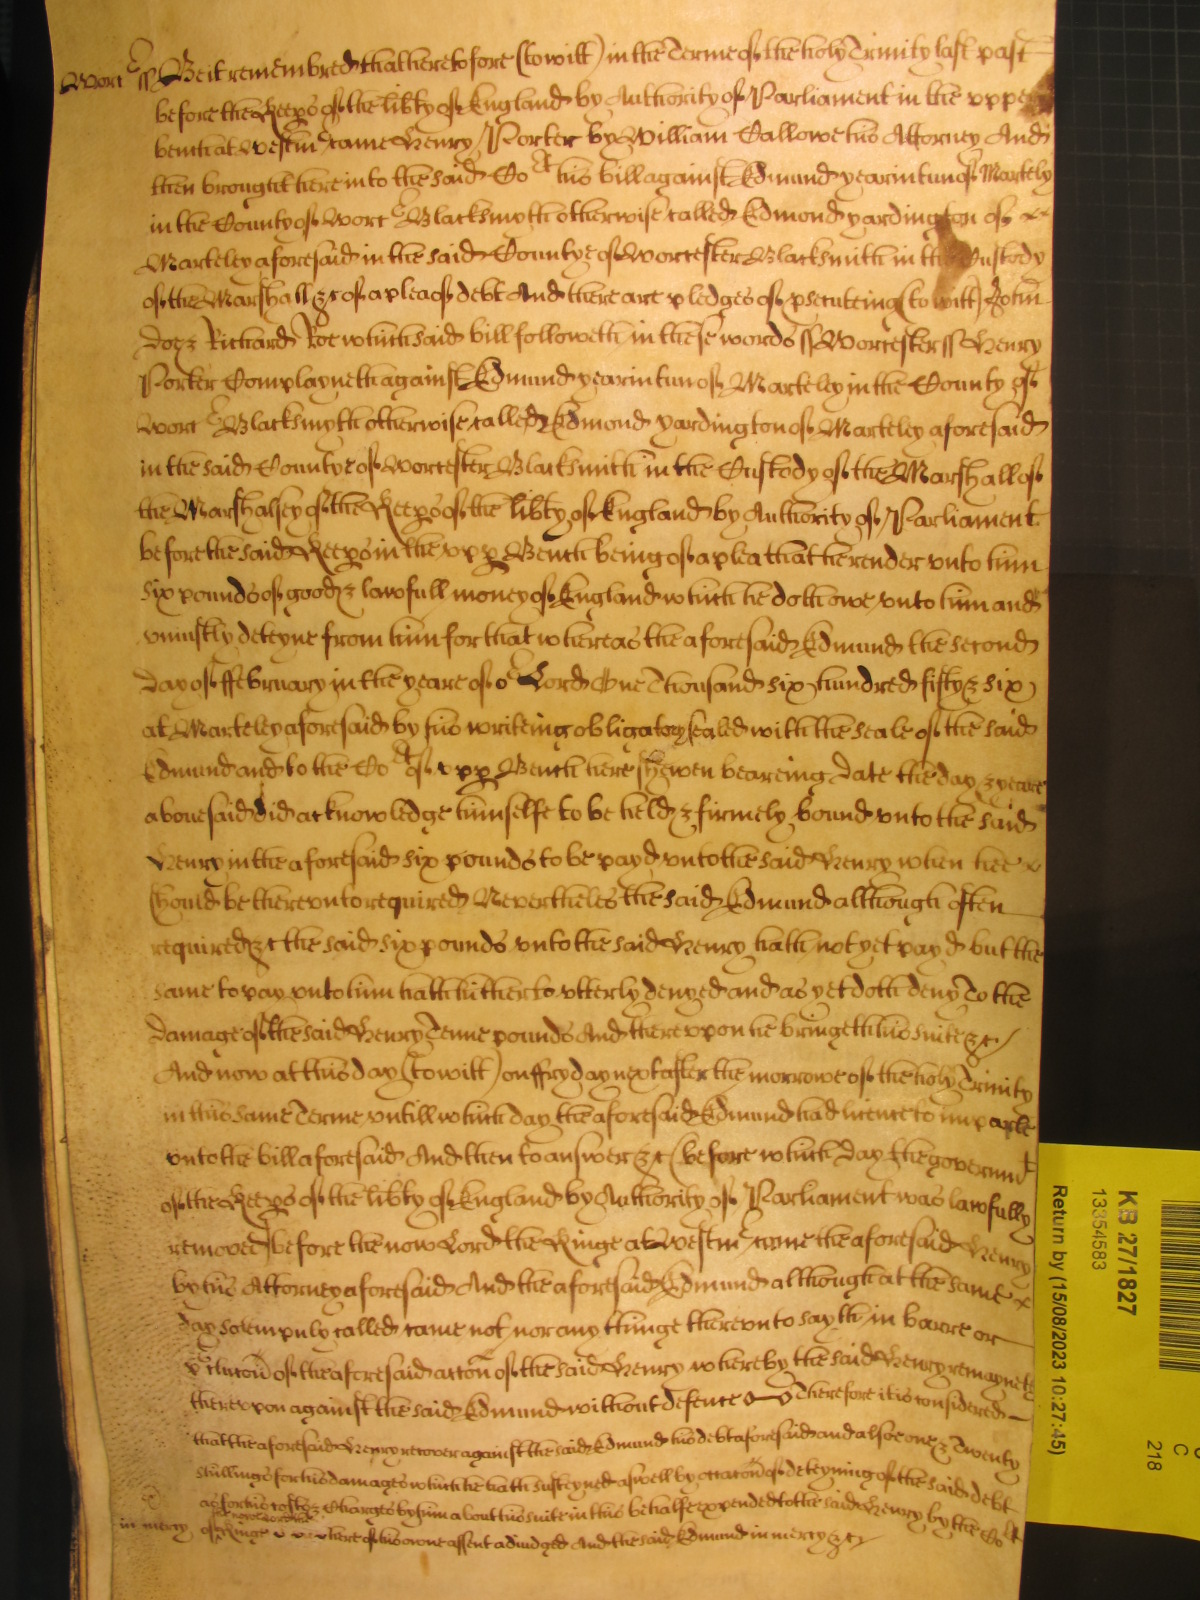 Worc ss Be it remembred that heretofore (to witt) in the Terme of the holy Trinity last past
before the Keeps of the libty of England by Authority of Parliament in the uppe
bench at Westm came Henry Porter by William Callowe his Attorney And
then brought here into the said Cort his bill against Edmund yearintun of Marteley
in the County of Worc Blacksmyth otherwise called Edmond yardington of
Marteley aforesaid in the said Countye of Worcester Blacksmith in the Custody
of the Marshall &c of a plea of debt And there are pledges of psecuteing (to witt) John
Doe & Richard Roe which said bill followeth in these words ss Worcester ss Henry
Porter Complayneth against Edmund yearintun of Marteley in the County of
Worc Blacksmyth otherwise called Edmond yardington of Marteley aforesaid
in the said Countye of Worcester Blacksmith in the Custody of the Marshall of
the Marshalsey of the Keeps of the libty of England by Authority of Parliament
before the said Keeps in the upp Bench being of a plea that he render unto him
six pounds of good & lawfull money of England which he doth owe unto him and
uniustly deteyne from him for that whereas the aforesaid Edmund the second
day of ffebruary in the yeare of or Lord One Thousand six hundred fifty & six
at Marteley aforesaid by his writeing obligatory sealed with the seale of the said
Edmund and to the Cort of upp Bench here shewen beareing date the day & yeare
abovesaid did acknowledge himselfe to be held & firmely bound unto the said
Henry in the aforesaid six pounds to be payd unto the said Henry when hee
should be thereunto required Nevertheles the said Edmund although often
required &c the said six pounds unto the said Henry hath not yet payd but the
same to pay unto him hath hitherto utterly denyed and as yet doth deny To the
damage of the said Henry Tenne pounds And thereupon he bringeth his suite &c
And now at this day (to witt) on ffryday next after the morrowe of the holy Trinity
in this same Terme untill which day the aforesaid Edmund had licence to imparle
unto the bill aforesaid And then to answer &c (before which day the governmt
of the Keeps of the libty of England by Authority of Parliament was lawfully
removed) before the now Lord the Kinge at Westm came the aforesaid Henry
by his Attorney aforesaid And the aforesaid Edmund although at the same
day solempnly called came not nor any thinge thereunto sayth in barre or
of the aforesaid accon of the said Henry whereby the said Henry remayneth
thereupon against the said Edmund without defence Therefore it is considered
that the aforesaid Henry recover against the said Edmund his debt aforesaid and alsoe one & Twenty
shillings for his damages which he hath susteyned aswell by occacon of deteyning of the said debt
as for his costs & Charges by him about his suite in this behalfe expended to the said Henry by the Cort
in mercy of Kinge here of his owne assent adiudged And the said Edmund in mercy &c
KB 27/1827
13354583
Return by (15/08/2023 10:27:45)
C
218